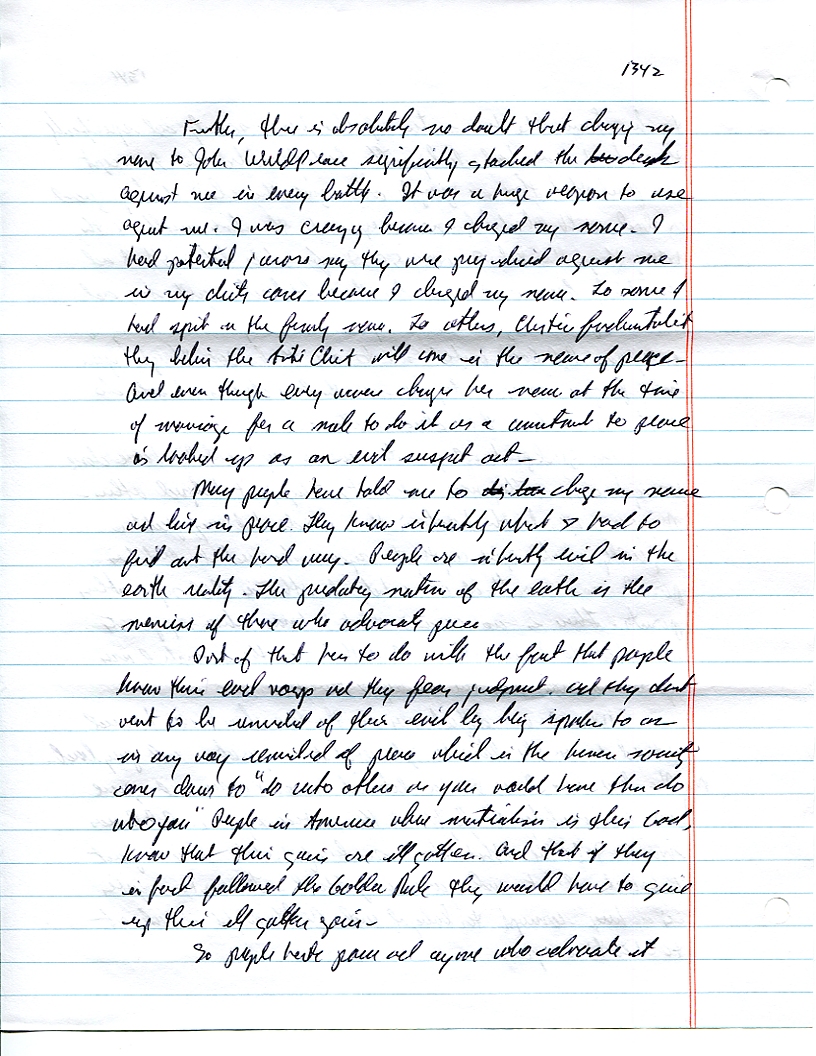 1342
Further, there is absolutely no doubt that changing my
name to John WorldPeace significantly stacked the deck
against me in every battle. It was a huge weapon to use
against me. I was crazy because I changed my name. I
had potential jurors say they were prejudiced against me
in my clients cases because I changed my name. To some I
had spit on the family name. To others, Christian fundamentalist
they believe the Anti Christ will come in the name of peace.
And even though every woman changes her name at the time
of marriage for a male to do it as a commitment to peace
is looked up as an evil suspect act.
Many people have told me to change my name
and live in peace. They know inherently what I had to
find out the hard way. People are inherently evil in the
earth reality. The predatory nature of the earth is the
nemesis of those who advocate peace
Part of that has to do with the fact that people
know their evil ways and they fear judgment. and they dont
want to be reminded of their evil by being spoken to or
in any way reminded of peace which in the human society
comes down to "do unto others as you would have them do
unto you" People in America where materialism is their God,
know that their gains are ill gotten. And that if they
in fact followed the Golden Rule they would have to give
up their ill gotten gains.
So people hate peace and anyone who advocate it